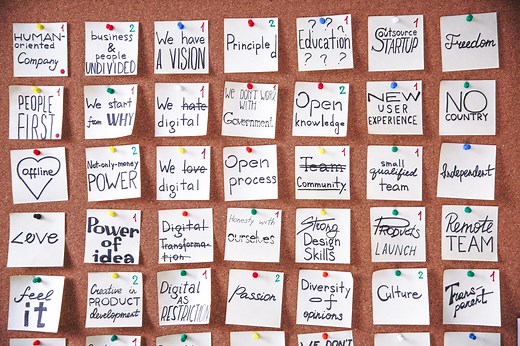 HUMAN-
oriented
Company.
1
business
&
people
UNDIVIDED
1
We have
A VISION
2
Principled
? ? ?
Education
? ? ?
1
Outsource
STARTUP
Freedom
2
PEOPLE
FIRST.
2
We start
from WHY
1
We hate
digital
2
We DON'T WORK
WITH
Government
2
Open
knowledge
2
NEW
USER
EXPERIENCE
NO
COUNTRY
offline
2
Not-only-money
POWER
1
We love
digital
1
Open
process
Team
Community.
1
small
qualified
team
Independent
Love
1
Power
of
idea
1
Digital
Transforma-
tion
Honesty with
ourselves
Strong
Design
Skills
1
Products
LAUNCH
Remote
TEAM
1
feel
it
2
Creative in
PRODUCT
development
1
Digital
AS
RESTRICTION
2
Passion
Diversity
of
opinions
2
Culture
1
Trans-
parent
WE DON'T